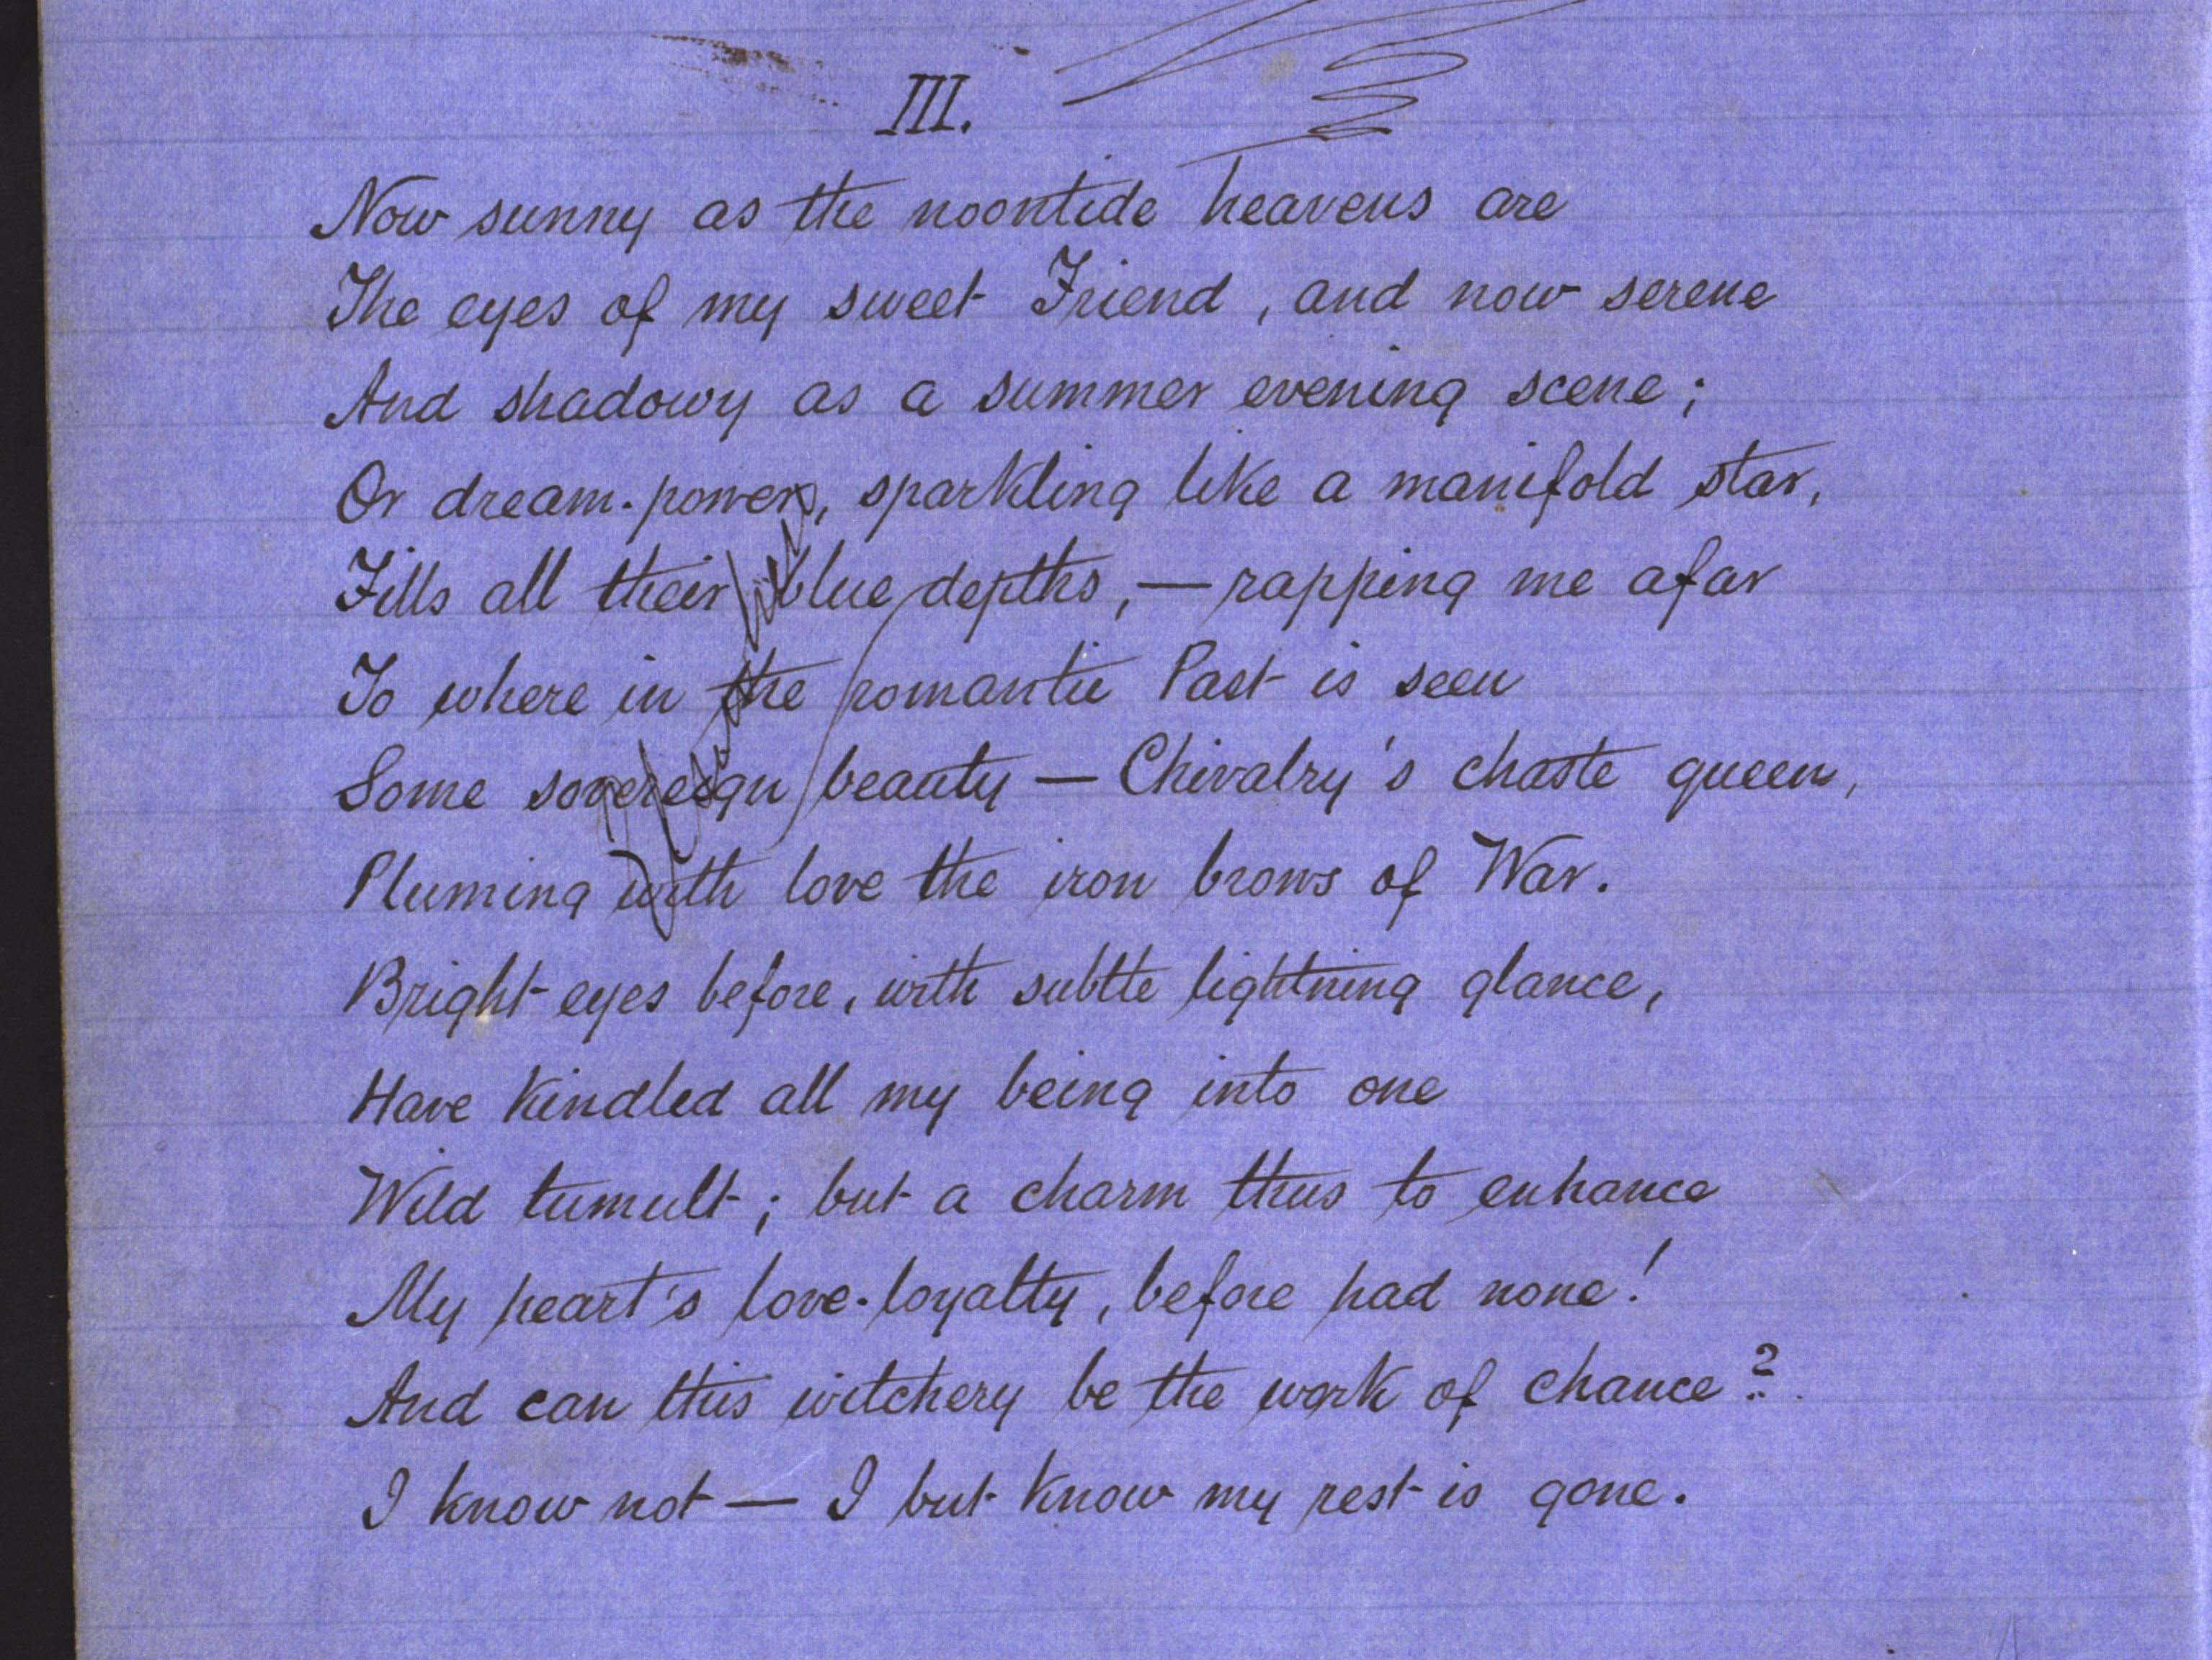 III.
Now sunny as the noontide heavens are
The eyes of my sweet Friend, and now serene
And shadowy as a summer evening scene;
Or dream-power, sparkling like a manifold star,
Fills all their blue depths,— rapping me afar
To where in the romantic Past is seen
Some sovereign beauty — Chivalry's chaste queen,
Pluming with love the iron brows of War.
Bright eyes before, with subtle lightning glance,
Have kindled all my being into one
Wild tumult; but a charm thus to enhance
My heart's love-loyalty, before had none!
And can this witchery be the work of chance?
I know not — I but know my rest is gone.